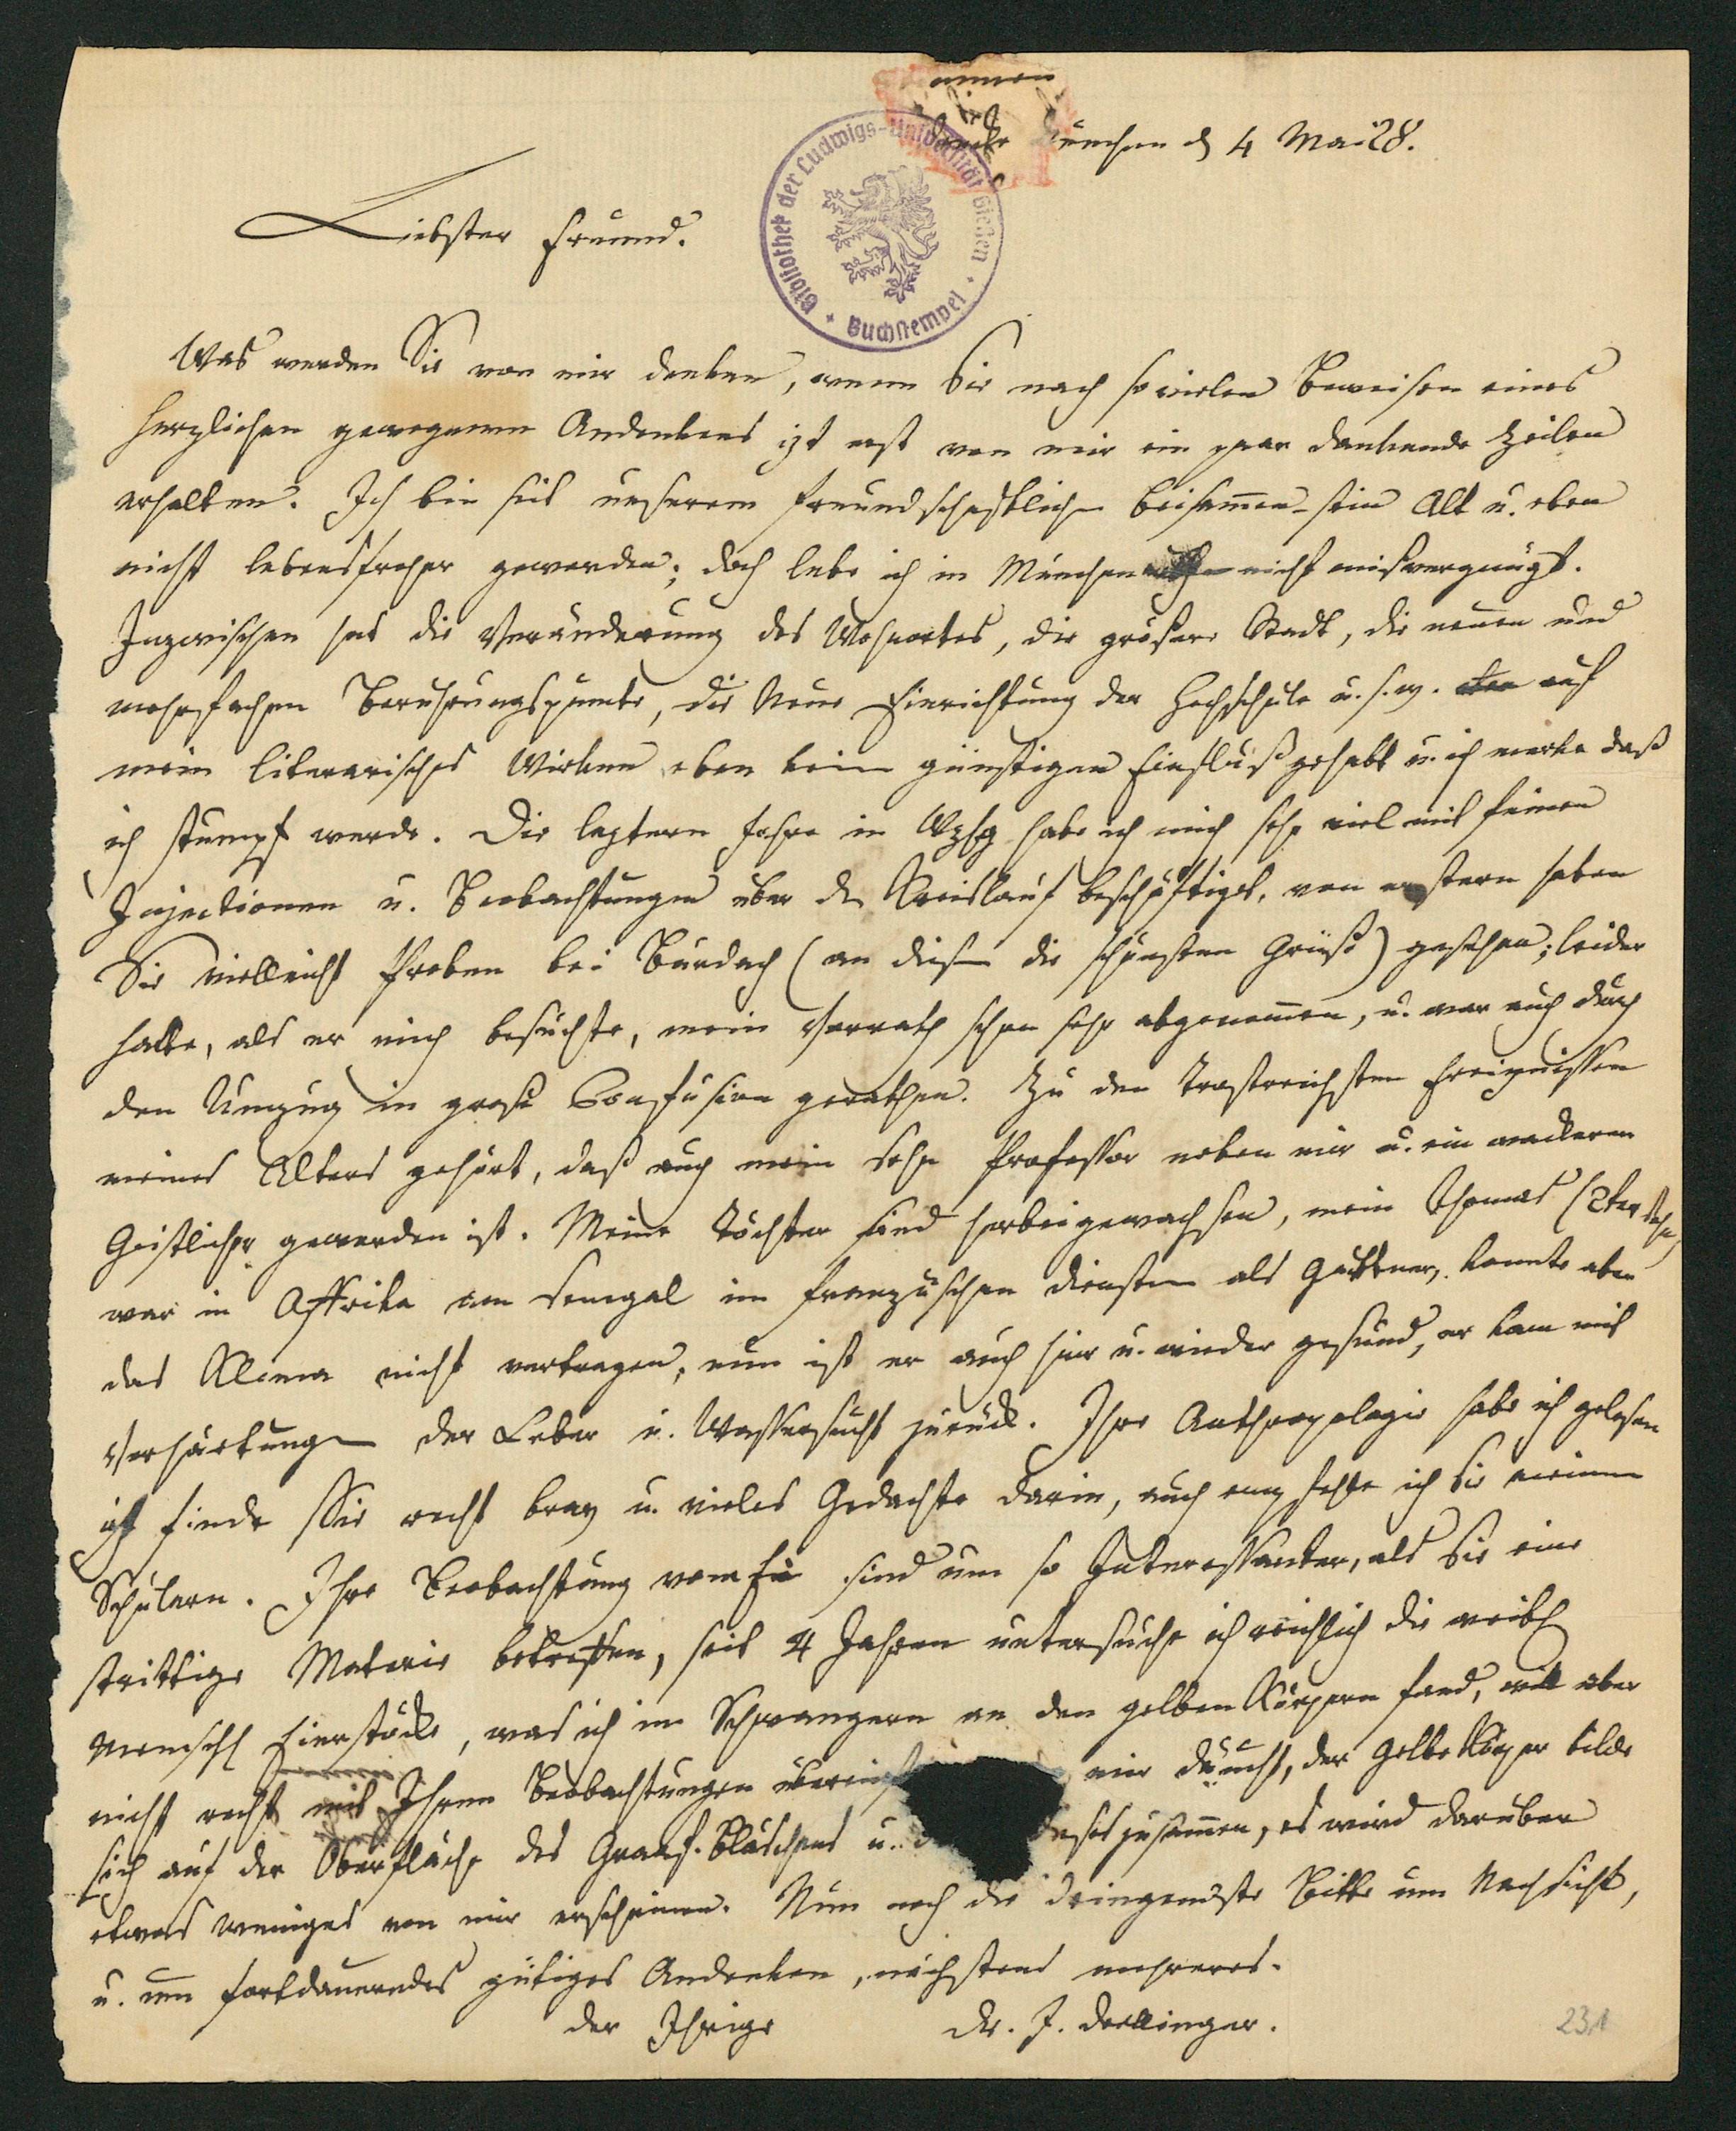 München d 4 Mai 28.
Bibliothek der Ludwigs-Universität Gießen
Buchstempel
Liebster Freund.
Was werden Sie von mir denken, wenn Sie nach so vielen Beweisen eines
herzlichen gewogenen Andenkens izt erst von mir ein paar dankende Zeilen
erhalten. Ich bin seit unserem freundschaftlichen Beisam̄en-sein Alt u. eben
nicht lebensfroher geworden; doch lebe ich in München nicht misvergnügt.
Inzwischen hat die Veränderung des Wohnortes, die größere Stadt, die neuen und
mehrfachen Berührungspunkte, die Neue Einrichtung der Hochschule u.s.w. auf
mein literarisches Wirken eben kein günstigen Einfluß gehabt u. ich merke daß
ich stumpf werde. Die leztern Jahre in Wzbg habe ich mich sehr viel mit feinen
Injectionen u. Beobachtungen über den Kreislauf beschäftiget, von erstern haben
Sie vielleicht Proben bei Burdach (an diesen die schönsten Grüße) gesehen; leider
hatte, als er mich besuchte, mein Vorrath schon sehr abgenom̄en, u. war auch durch
den Umzug in große Confusion gerathen. Zu den Trostreichsten Ereignissen
meines Alters gehört, daß auch mein Sohn Professor neben mir u. ein wackerer
Geistlicher geworden ist. Meine Töchter sind herbeigewachsen, mein Thomas (2ter Sohn)
war in Affrika am Senegal in französchen Diensten als Gärtner, konnte aber
das Klima nicht vertragen, nun ist er auch hier u. wieder gesund, er kam mit
Verhärtungen der Leber u. Wassersucht zurück. Ihre Anthropologie habe ich gelesen
ich finde Sie recht brav u. vieles Gedachte darin, auch empfehle ich sie meinen
Schülern. Ihre Beobachtung vom Ei sind um so Interessanter, als Sie eine
strittige Materie betreffen, seit 4 Jahren untersuche ich reichlich die weibl
menschl Eierstöcke, was ich in Schwangern an den gelben Körpern fand, will aber
nicht recht mit Ihren Beobachtungen übereinst mir däucht, der gelbe Körper bilde
sich auf der Oberfläche des Graaf. Bläschens u. zusam̄en, es wird darüber
etwas weniges von mir erscheinen. Nun noch die dringendste Bitte um Nachsicht,
u. um fortdauerndes gütiges Andenken, nächstens mehreres.
der Ihrige Dr. J. Doellinger.
231